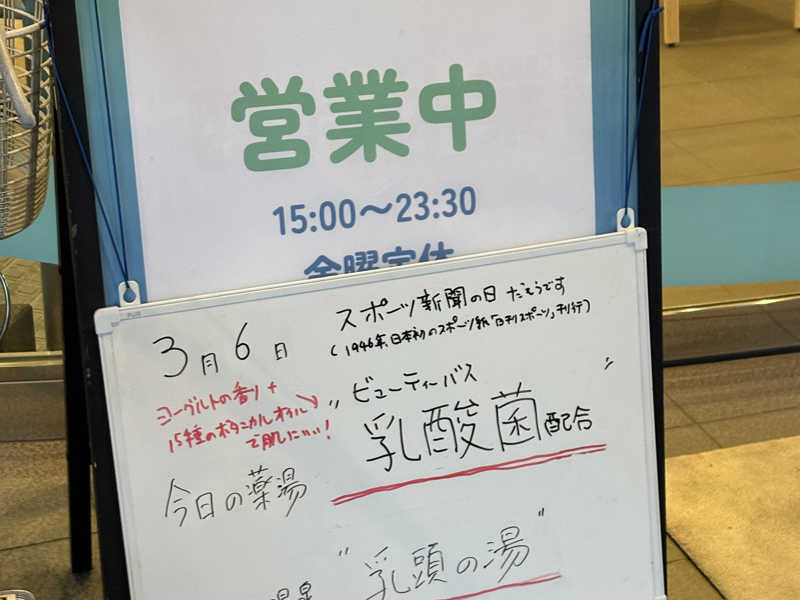 営業中
15:00〜23:30
金曜定休
3月6日 スポーツ新聞の日 だそうです
(1946年、日本初のスポーツ紙「日刊スポーツ」刊行)
ヨーグルトの香り+
15種のボタニカルオイル
で肌にいい!
"ビューティーバス
乳酸菌配合"
今日の薬湯
温泉 "乳頭の湯"